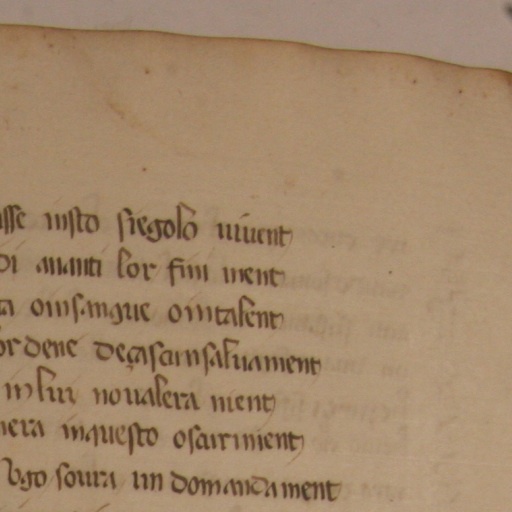 sse insto siegolo vivent
di avanti lor fiu ment
omsangue omtalent
ordene deçascunsalvament
in lui novalera nient
nera inquesto oscurment
Ugo soura un domandament